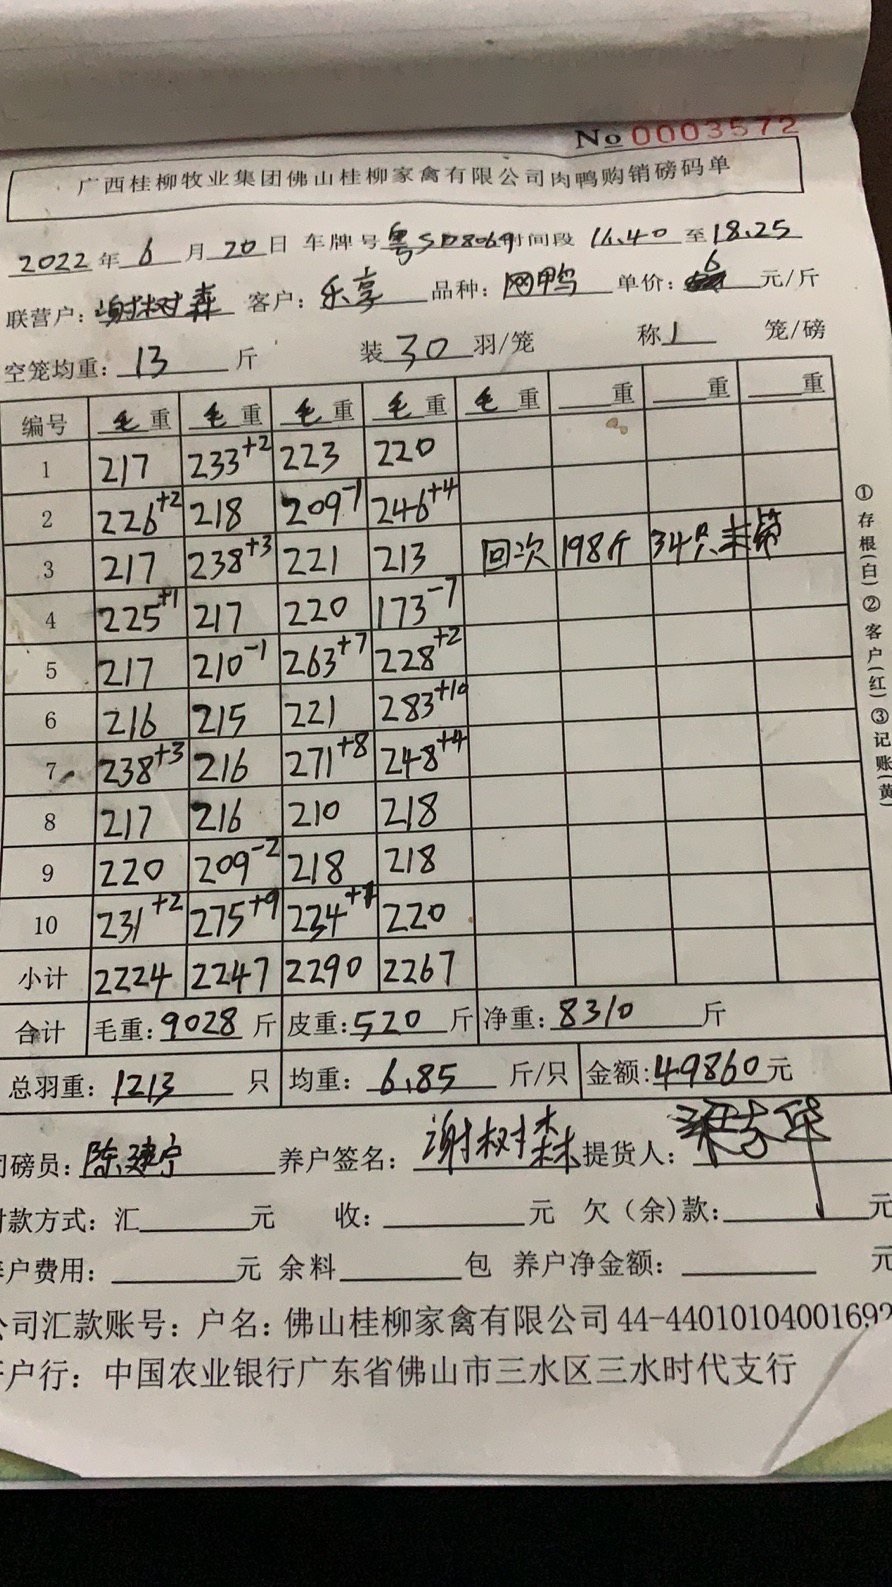 No 0003572
广西桂柳牧业集团佛山桂柳家禽有限公司肉鸭购销磅码单
2022 年 6 月 20 日 车牌号 粤SD8069 时间段 16.40 至 18.25
联营户: 谢树森 客户: 乐享 品种: 网鸭 单价: 6 元/斤
空笼均重: 13 斤 装 30 羽/笼 称 1 笼/磅
编号 毛重 毛重 毛重 毛重 毛重 重 重 重
1 217 233+2 223 220
2 226+2 218 209-1 246+4
3 217 238+3 221 213 回次 198斤 34只未算
4 225+1 217 220 173-7
5 217 210-1 263+7 228+2
6 216 215 221 283+10
7 238+3 216 271+8 248+4
8 217 216 210 218
9 220 209-2 218 218
10 231+2 275+9 234 220
小计 2224 2247 2290 2267
合计 毛重: 9028 斤 皮重: 520 斤 净重: 8310 斤
总羽重: 1213 只 均重: 6.85 斤/只 金额: 49860 元
磅员: 陈建宁 养户签名: 谢树森 提货人:
付款方式: 汇 元 收: 元 欠(余)款: 元
户费用: 元 余料 包 养户净金额: 元
公司汇款账号: 户名: 佛山桂柳家禽有限公司 44-44010104001692
户行: 中国农业银行广东省佛山市三水区三水时代支行
①存根(白)②客户(红)③记账(黄)